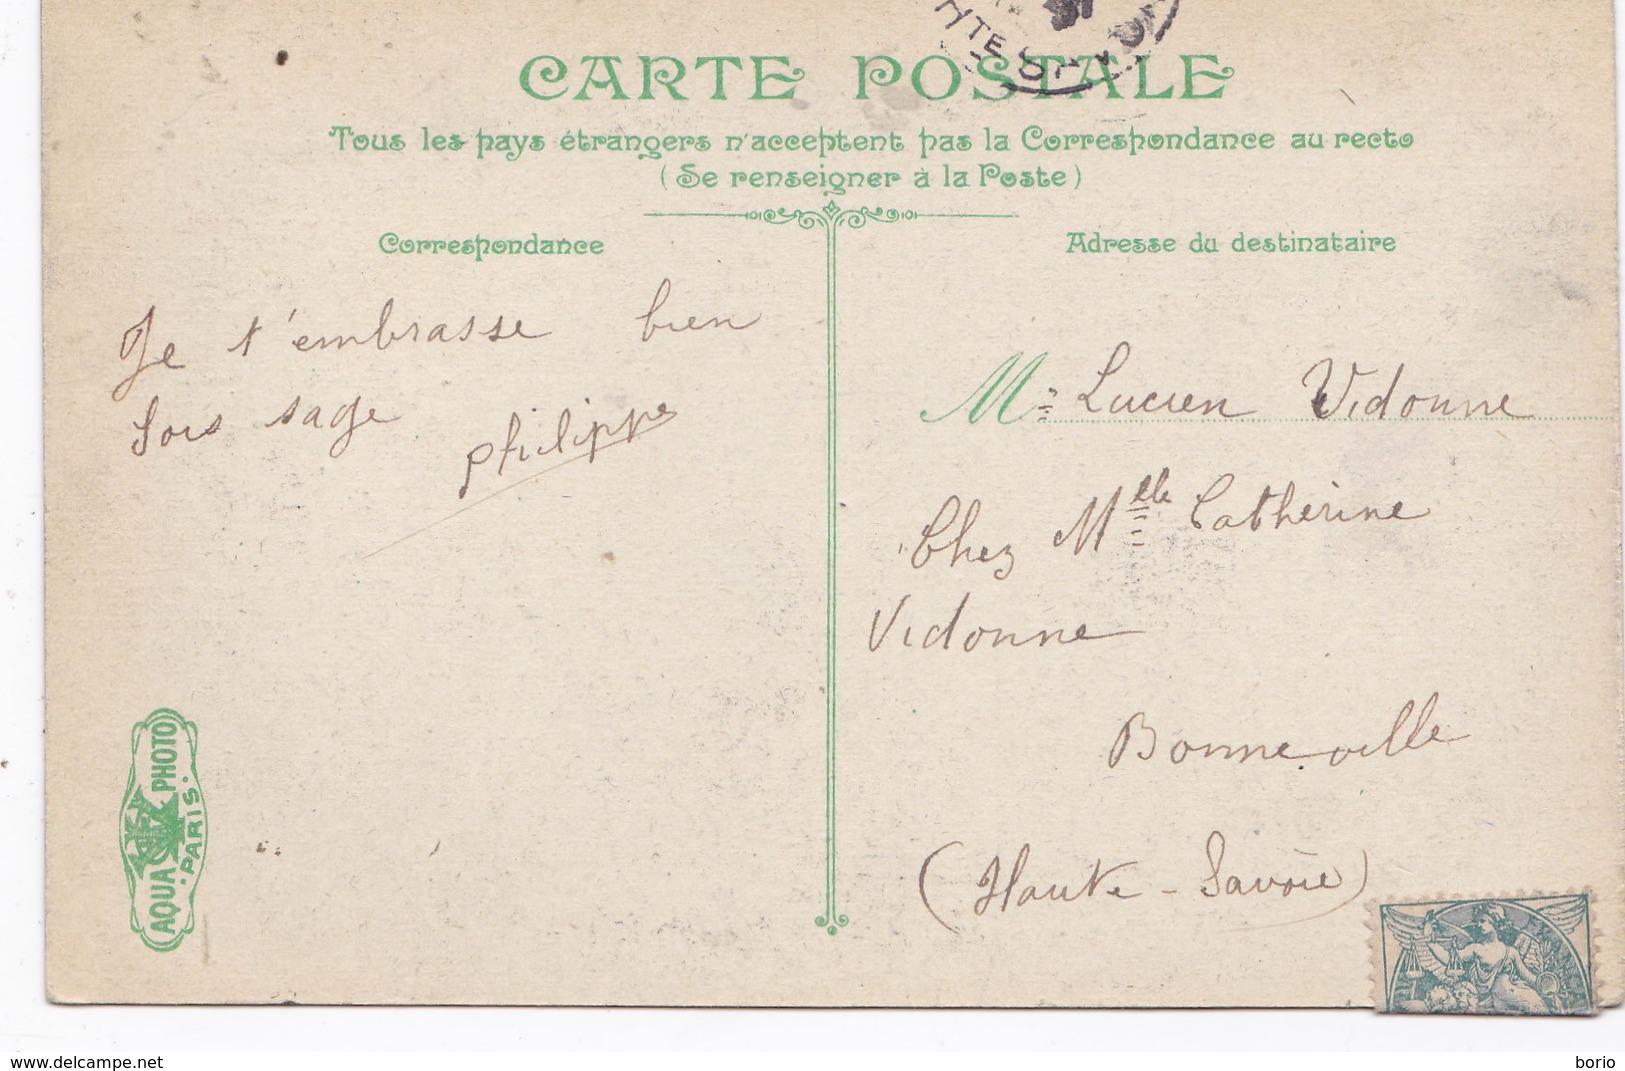 CARTE POSTALE
Tous les pays étrangers n'acceptent pas la Correspondance au recto
(Se renseigner à la Poste)
Correspondance
Adresse du destinataire
Je t'embrasse bien
Sois sage
philippe
Mr Lucien Vidonne
Chez Mlle Catherine
Vidonne
Bonneville
(Haute-Savoie)
AQUA PHOTO
PARIS.
www.delcampe.net
borio